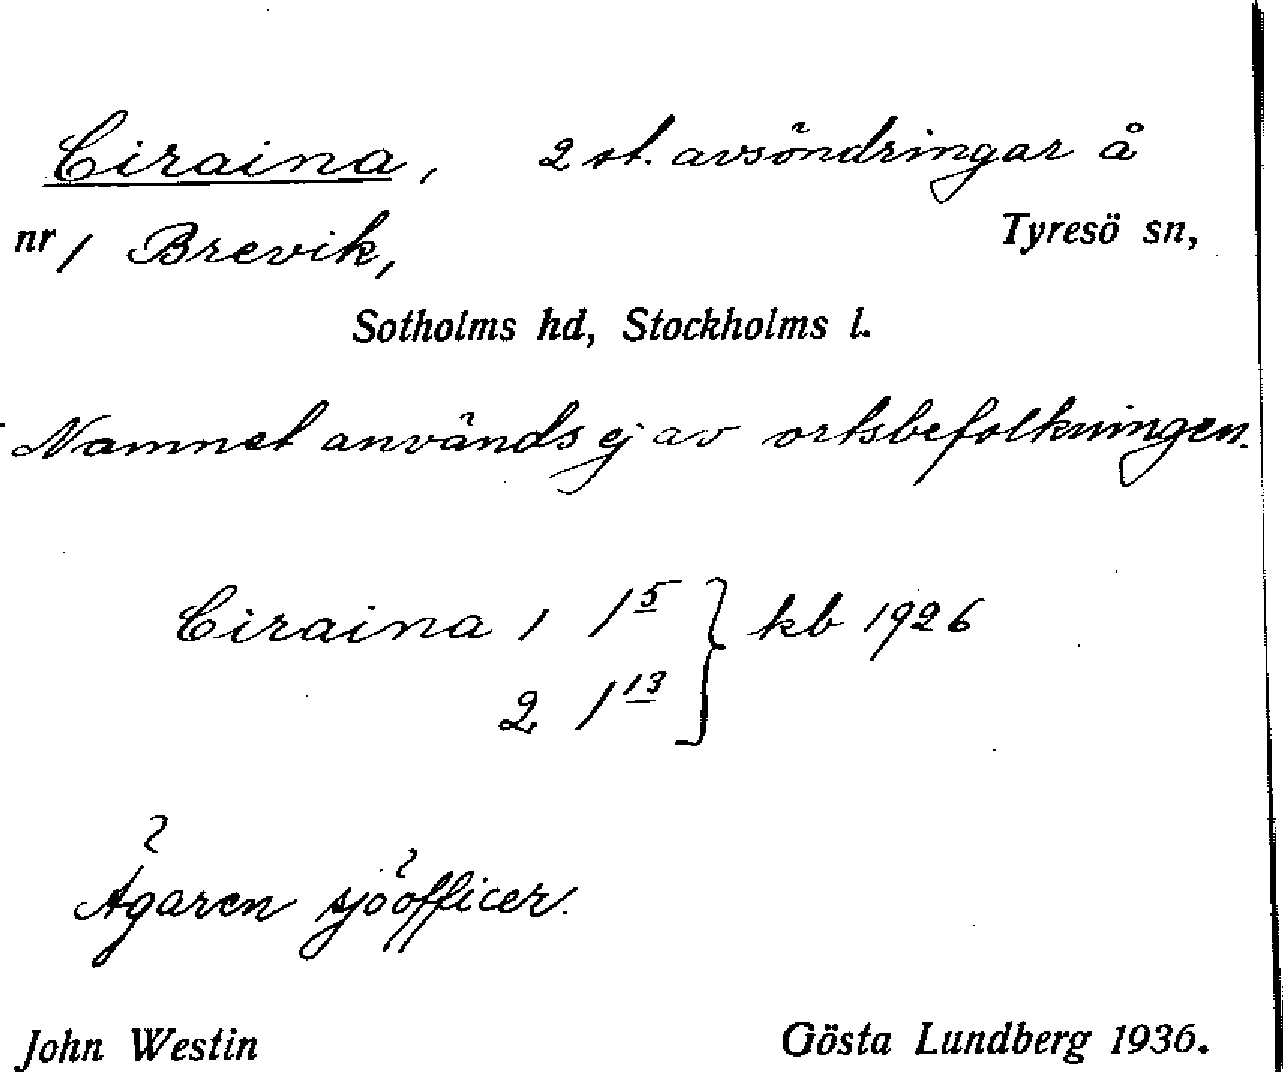 Ciraina, 2 st. avsöndringar å
nr 1 Brevik, Tyresö sn,
Sotholms hd, Stockholms l.
Namnet används ej av ortsbefolkningen.
Ciraina 1 1⁵ } kb 1926
2 1¹³
Ägaren sjöofficer.
John Westin Gösta Lundberg 1936.